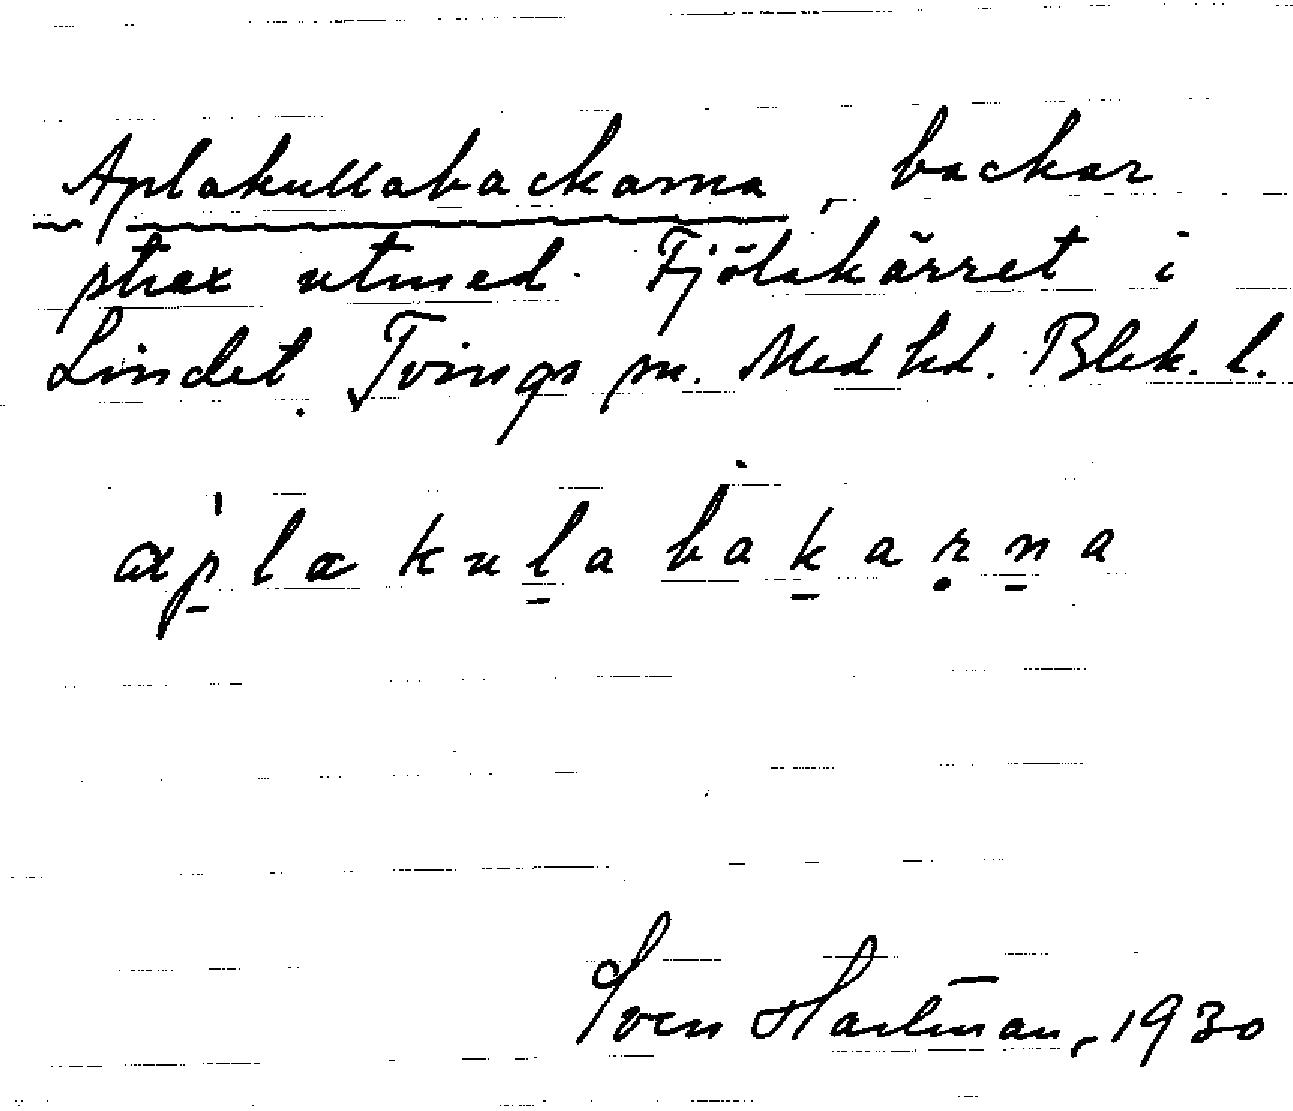 Aplakullabackarna, backar
strax utmed Fjölakärret i
Lindet. Tvings sn. Med hd. Blek. l.
aplakulabakarna
Sven Hartman, 1930